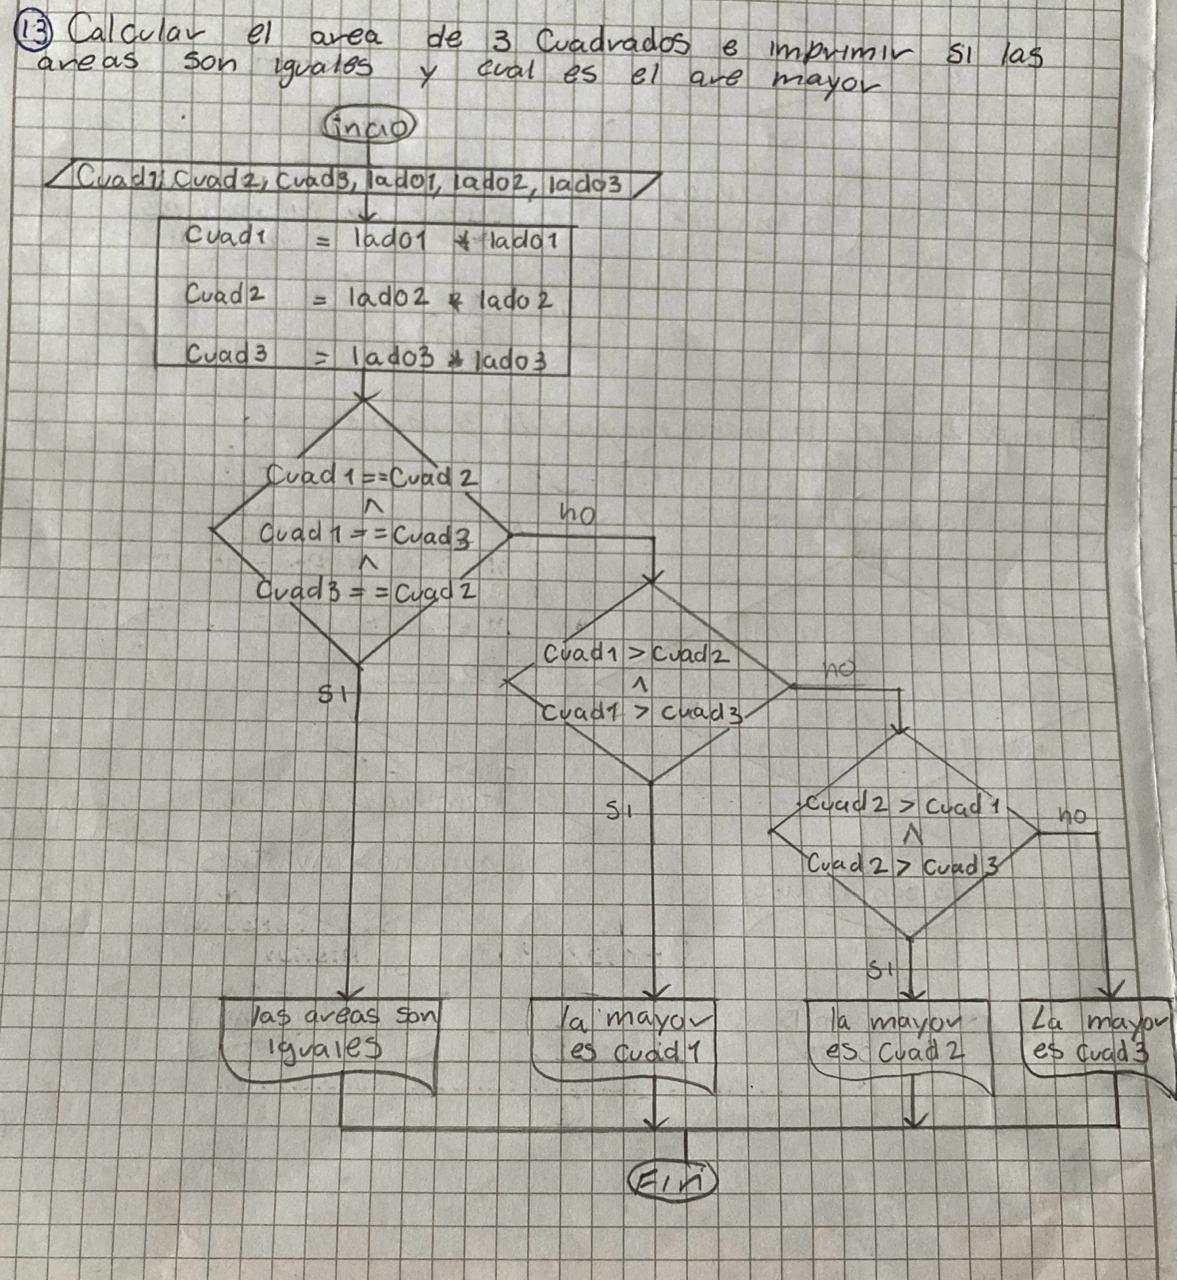 13 Calcular el area de 3 Cuadrados e imprimir si las
areas son iguales y cual es el are mayor
incio
Cuad1, Cuad2, Cuad3, lado1, lado2, lado3
Cuad1 = lado1 * lado1
Cuad2 = lado2 * lado2
Cuad3 = lado3 * lado3
Cuad1 == Cuad2
^
Cuad1 == Cuad3
^
Cuad3 == Cuad2
no
si
Cuad1 > Cuad2
^
Cuad1 > Cuad3
no
si
Cuad2 > Cuad1
^
Cuad2 > Cuad3
no
si
las areas son
iguales
la mayor
es Cuad1
la mayor
es Cuad2
La mayor
es Cuad3
Fin